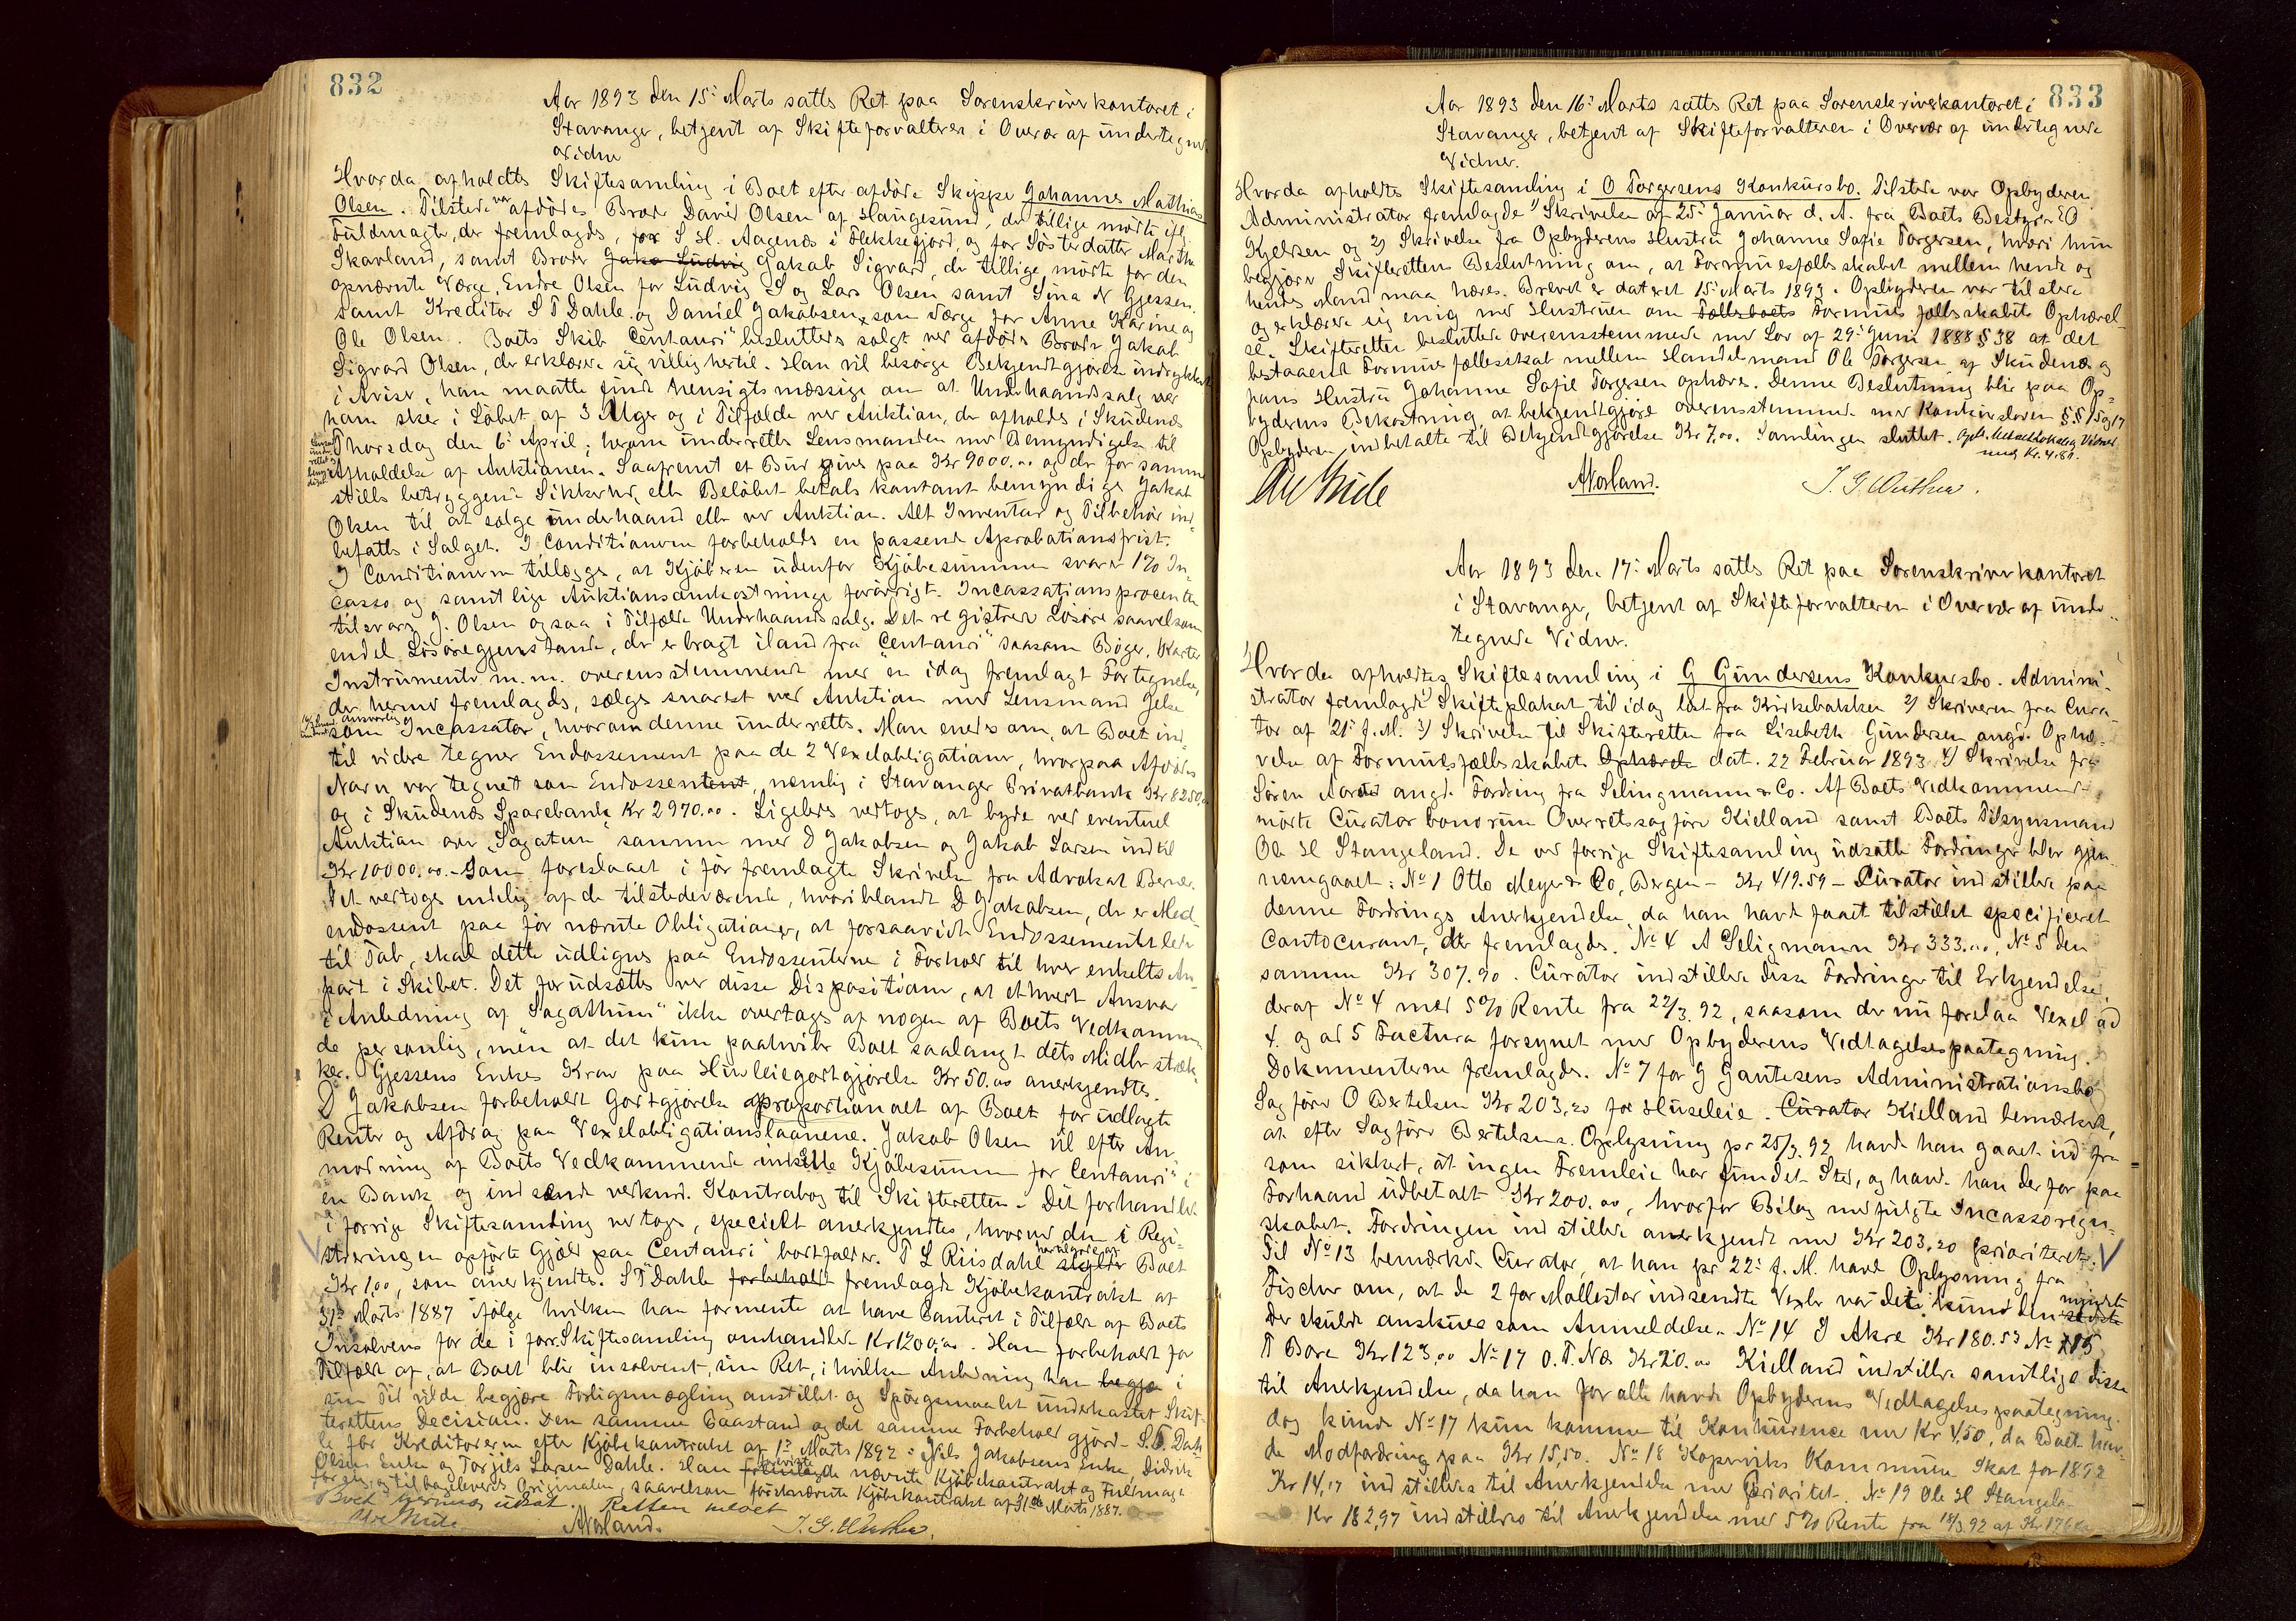 832
Aar 1893 den 15de Marts sattes Ret paa Sorenskriverkontoret i
Stavanger, betjent af Skifteforvalteren i Overvær af undertegnede
Vidner
Hvorda afholdtes Skiftesamling i Boet efter afdöde Skipper Johannes Mathias
Olsen. Tilstede var afdödes Broder David Olsen af Haugesund, der tillige mödte ifg
Fuldmagt, der fremlagdes, for S H. Aagenæs i Flekkefjord, og for Sösterdatter Marthe
Skarland, samt Broder Jako Ludvig Jakob Sigvard, der tillige mödte for den
opnævnte Værge, Endre Olsen for Ludvig S og Lars Olsen samt Sina N Gjessen.
samt Kreditor S T Dahle og Daniel Jakobsen, som Værge for Anne Karine og
Ole Olsen. Boets Skib "Centauri" besluttedes solgt ved afdödes Broder Jakob
Sigvard Olsen, der erklærede sig villig hertil. Han vil besörge Bekjendtgjörelse indrykket
i Aviser, han maatte finde hensigtsmæssige om at Underhaandssalg ved
ham sker i Löbet af 3 Uger og i Tilfælde ved Auktion, der afholdes i Skudenæs
Thorsdag den 6te April; herom underrettes Lensmanden med Bemyndigelse til
Afholdelse af Auktionen. Saafremt et Bud gives paa Kr 9000.00 og der for samme
stilles betryggende Sikkerhed, eller Belöbet betales kontant bemyndiges Jakob
Olsen til at sælge underhaand eller ved Auktion. Alt Inventar og Tilbehör ind-
befattes i Salget. I Conditionerne forbeholdes en passende Aprobationsfrist.
I Conditionerne tillægges, at Kjöberen udenfor Kjöbesummen svarer 1% In-
casso og samtlige Auktionsomkostninger forövrigt. Incassationsprocenten
tilsvarer J. Olsen ogsaa i Tilfælde Underhaandssalg. Det registrerede Lösöre saavelsom
endel Lösöregjenstande, der er bragt iland fra "Centauri" saasom Böger, Karter
Instrumenter m.m. overensstemmende med en idag fremlagt Fortegnelse,
der herved fremlagdes, sælges snarest ved Auktion med Lensmand Jelse
som ansvarlig Incassator, hvorom denne underrettes. Man enedes om, at Boet ind-
til videre tegner Endossement paa de 2 Vexelobligationer, hvorpaa Afdödes
Navn var tegnet som Endossent, nemlig i Stavanger Privatbank Kr 8250,00
og i Skudenæs Sparebank Kr 2970.00. Ligeledes vedtoges, at byde ved eventuel
Auktion over "Sagatun" sammen med D Jakobsen og Jakob Larsen indtil
Kr 10000.00 - som foreslaaet i för fremlagte Skrivelse fra Advokat Berner.
Det vedtoges endelig af de tilstedeværende, hvoriblandt D Jakobsen, der er Med-
endossent paa för nævnte Obligationer, at forsaavidt Endossementet leder
til Tab, skal dette udlignes paa Endossenterne i Forhold til hver enkelts An-
part i Skibet. Det forudsættes ved disse Dispositioner, at ethvert Ansvar
i Anledning af "Sagathun" ikke overtages af nogen af Boets Vedkommen-
de personlig, men at det kun paahviler Boet saalangt dets Midler stræk-
ker. Gjessens Enkes Krav paa Husleiegodtgjörelse Kr 50.00 anerkjendtes.
D Jakobsen forbeholdt Godtgjörelse proportionalt af Boet for udlagte
Renter og Afdrag paa Vexelobligationslaanene. Jakob Olsen vil efter An-
modning af Boets Vedkommende indsætte Kjöbesummen for "Centauri" i
en Bank og indsende vedkomd. Kontrabog til Skifteretten. Det forhandlede
i forrige Skiftesamling vedtoges, specielt anerkjendtes, hvorved den i Regi-
streringen opförte Gjæld paa "Centauri" bortfalder. T L Riisdahl Boet
Kr 1,00, som anerkjendtes. S T Dahle forbeholdt fremlagde Kjöbekontrakt af
31te Marts 1887 ifölge hvilken han formente at have Panteret i Tilfælde af Boets
Insolvens for de i forr. Skiftesamling omhandlede Kr 1200,00. Han forbeholdt for
Tilfældet af, at Boet blir insolvent, sin Ret, i hvilken Anledning han begjæ i
sin Tid vilde begjære Forligsmægling anstillet og Spörgsmaalet underkastet Skif-
terettens Decision. Den samme Paastand og det samme Forbehold gjorde S.T. Dah-
le for Kreditorerne efter Kjöbekontrakt af 1ste Marts 1892: Nils Jakobsens Enke, Didrik
Olsens Enke og Torjels Larsen Dahle. Han fremlagde nævnte Kjöbekontrakt og Fuldmagt
for sig, og tilbageleveredes Originalen, saavelsom förstnævnte Kjöbekontrakt af 31te Marts 1887.
Boet herved udsat. Retten hævet
A Norland. J. G. Wuthen.
833
Aar 1893 den 16de Marts sattes Ret paa Sorenskriverkontoret i
Stavanger, betjent af Skifteforvalteren i Overvær af undertegnede
Vidner.
Hvorda afholdtes Skiftesamling i O Torgersens Konkursbo. Tilstede var Opbyderen
Administrator fremlagde 1) Skrivelse af 25de Januar d. A. fra Boets Bestyrer O
Kjelsen og 2) Skrivelse fra Opbyderens Hustru Johanne Sofie Torgersen, hvori hun
begjærer Skifterettens Beslutning om, at Formuesfællesskabet mellem hende og
hendes Mand maa hæves. Brevet er dateret 15de Marts 1893. Opbyderen var tilstede
og erklærede sig enig med Hustruen om Fællesboets Formues fællesskabets Ophævel-
se. Skifteretten besluttede overensstemmende med Lov af 29de Juni 1888 § 38 at det
bestaaende Formuesfællesskab mellem Handelsmand Ole Torgersen af Skudenæs og
hans Hustru Johanne Sofie Torgersen ophæves. Denne Beslutning blir paa Op-
byderens Bekostning at bekjendtgjöre overensstemmende med Konkursloven §§ 15 og 17
Opbyderen indbetalte til Bekjendtgjörelse Kr 7,00. Samlingen sluttet.
med Kr. 4.80.
A Norland. J. G. Wuthen.
Aar 1893 den 17de Marts sattes Ret paa Sorenskriverkontoret
i Stavanger, betjent af Skifteforvalteren i Overvær af under-
tegnede Vidner.
Hvorda afholdtes Skiftesamling i G Gundersens Konkursbo. Admini-
strator fremlagde 1) Skifteplakat til idag læst fra Kirkebakken 2) Skriveren fra Cura-
tor af 21de f. M. 3) Skrivelse til Skifteretten fra Lisebeth Gundersen angd. Ophæ-
velse af Formuesfællesskabet Ophævelse dat. 22 Februar 1893 4) Skrivelse fra
Sören Aarek angd. Fordring fra Selingmann & Co. Af Boets Vedkommende
mödte Curator bonorum Overretssagförer Kielland samt Boets Tilsynsmand
Ole H Stangeland. De ved forrige Skiftesamling udsatte Fordringer blev gjen-
nemgaaet: No 1 Otto Meyer & Co, Bergen - Kr 419.59 - Curator indstillede paa
denne Fordrings Anerkjendelse, da han havde faaet tilstillet specificeret
Contocurant, der fremlagdes. No 4 A Seligmann Kr 333.00, No 5 den
samme Kr 307.90. Curator indstillede disse Fordringer til Erkjendelse,
deraf No 4 med 5% Rente fra 22/3.92, saasom der nu forelaa Vexel ad
4. og ad 5 Factura forsynet med Opbyderens Vedtagelsespaategning.
Dokumenterne fremlagdes. No 7 for G Gautesens Administrationsbo
Sagförer O Bertelsen Kr 203,20 for Husleie. Curator Kielland bemærkede,
at efter Sagförer Bertelsens Oplysning pr 25/3.92 havde han gaaet ud fra
som sikkert, at ingen Fremleie har fundet Sted, og havde han derfor paa
Forhaand udbetalt Kr 200.00, hvorfor Bilag medfulgte Incassoregn-
skabet. Fordringen indstilledes anerkjendt med Kr 203.20 prioriteret.
Til No 13 bemærkede Curator, at han pr 22de f. M. havde Oplysning fra
Fischer om, at de 2 for Mollestar indsendte Vexler var dele kun den mindste
der skulde anskues som Anmeldelse. No 14 J Akre Kr 180.53 No 15
T Bore Kr 123.00 No 17 O. T. Næs Kr 20.00 Kielland indstillede samtlige disse
til Anerkjendelse, da han for alle havde Opbyderens Vedtagelsespaategning.
dog kunde No 17 kun komme til Konkurence med Kr 4,50, da Boet hav-
de Modfordring paa Kr 15,50. No 18 Koperviks Kommune Skat for 1892
Kr 14,17 indstilledes til Anerkjendelse med Prioritet. No 19 Ole H Stangela-
Kr 182,97 indstilledes til Anerkjendelse med 5% Rente fra 18/3.92 af Kr 176